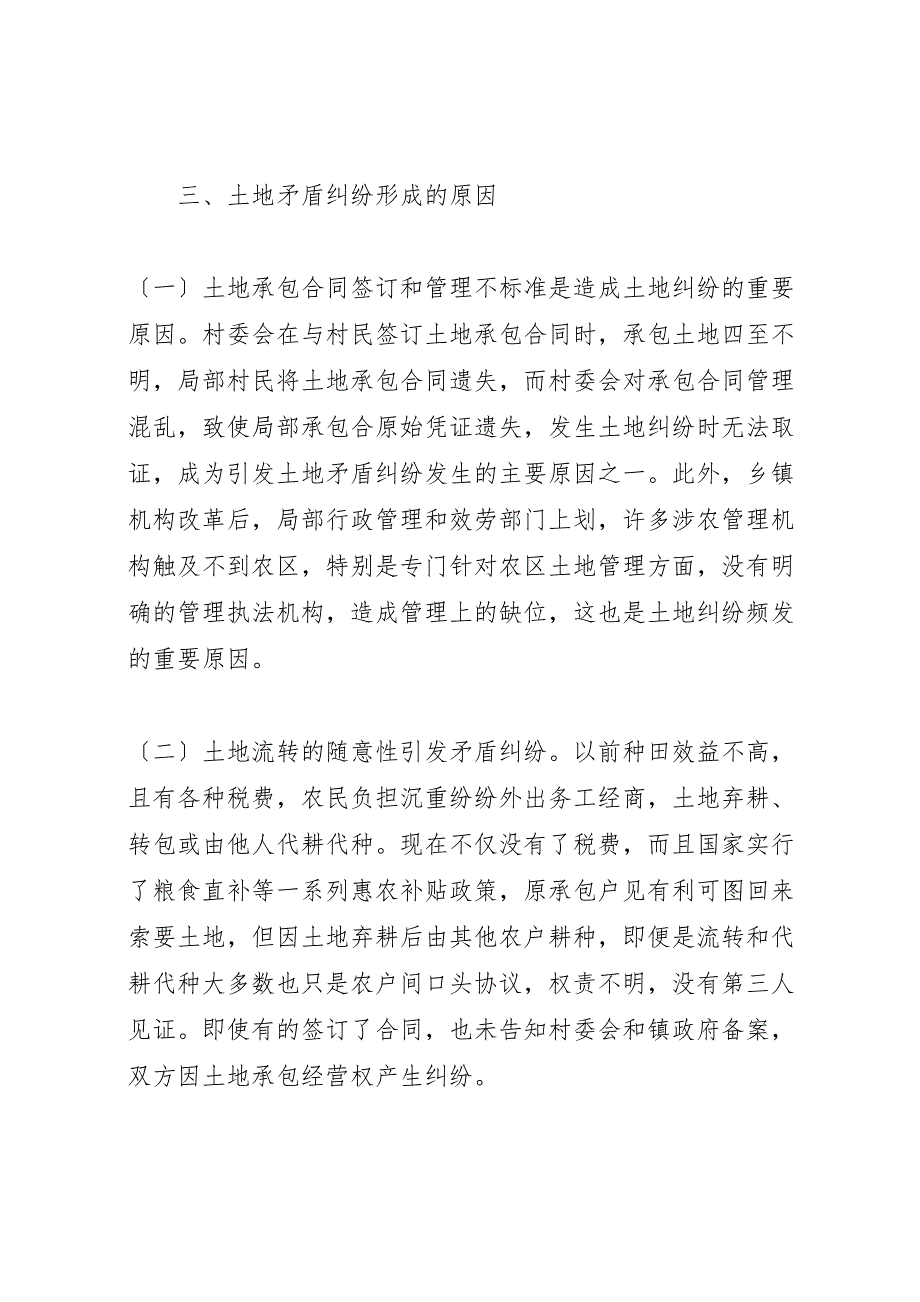 三、土地矛盾纠纷形成的原因
〔一〕土地承包合同签订和管理不标准是造成土地纠纷的重要
原因。村委会在与村民签订土地承包合同时，承包土地四至不
明，局部村民将土地承包合同遗失，而村委会对承包合同管理
混乱，致使局部承包合原始凭证遗失，发生土地纠纷时无法取
证，成为引发土地矛盾纠纷发生的主要原因之一。此外，乡镇
机构改革后，局部行政管理和效劳部门上划，许多涉农管理机
构触及不到农区，特别是专门针对农区土地管理方面，没有明
确的管理执法机构，造成管理上的缺位，这也是土地纠纷频发
的重要原因。
〔二〕土地流转的随意性引发矛盾纠纷。以前种田效益不高，
且有各种税费，农民负担沉重纷纷外出务工经商，土地弃耕、
转包或由他人代耕代种。现在不仅没有了税费，而且国家实行
了粮食直补等一系列惠农补贴政策，原承包户见有利可图回来
索要土地，但因土地弃耕后由其他农户耕种，即便是流转和代
耕代种大多数也只是农户间口头协议，权责不明，没有第三人
见证。即使有的签订了合同，也未告知村委会和镇政府备案，
双方因土地承包经营权产生纠纷。